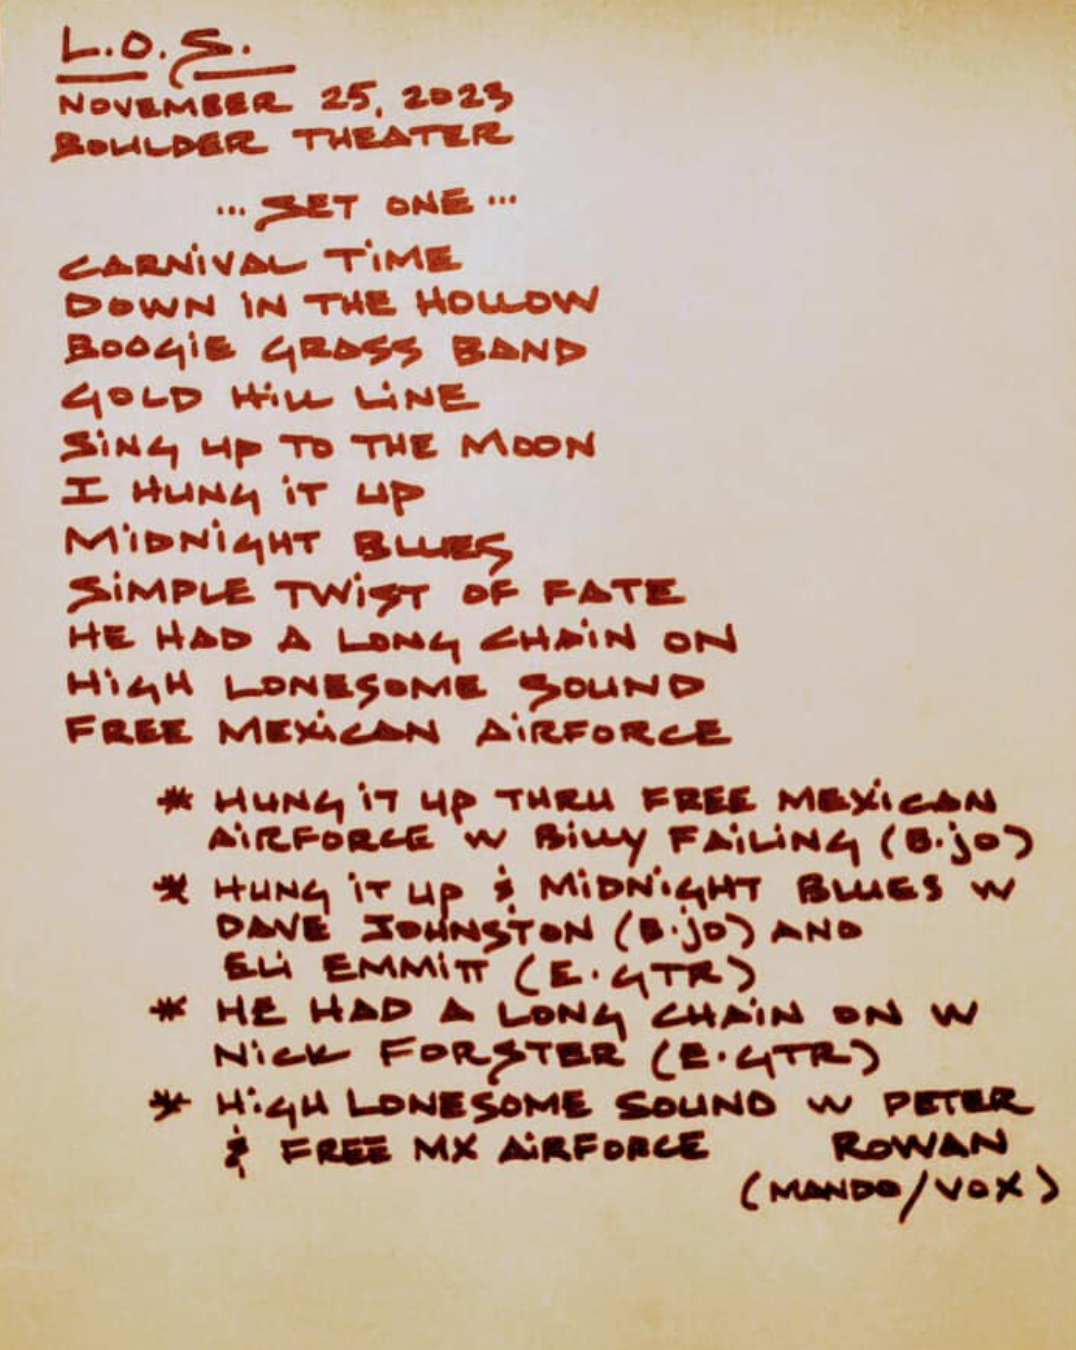 L.O.S.
NOVEMBER 25, 2023
BOULDER THEATER
... SET ONE ...
CARNIVAL TIME
DOWN IN THE HOLLOW
BOOGIE GRASS BAND
GOLD HILL LINE
SING UP TO THE MOON
I HUNG IT UP
MIDNIGHT BLUES
SIMPLE TWIST OF FATE
HE HAD A LONG CHAIN ON
HIGH LONESOME SOUND
FREE MEXICAN AIRFORCE
* HUNG IT UP THRU FREE MEXICAN
AIRFORCE W BILLY FAILING (B.JO)
* HUNG IT UP & MIDNIGHT BLUES W
DAVE JOHNSTON (B.JO) AND
ELI EMMITT (E.GTR)
* HE HAD A LONG CHAIN ON W
NICK FORSTER (E.GTR)
* HIGH LONESOME SOUND W PETER
& FREE MX AIRFORCE ROWAN
(MANDO/VOX)